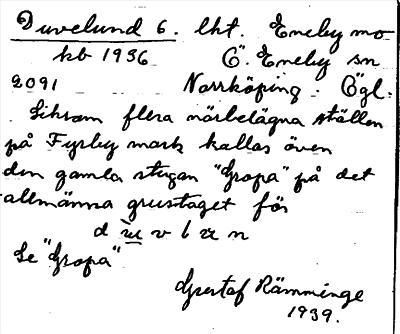 Duvelund 6. lht. Eneby mo
kb 1936 Ö. Eneby sn
2091 Norrköping. Ögl.
Liksom flera närbelägna ställen
på Fyrby mark kallas även
den gamla stugan "Gropa" på det
allmänna grustaget för
d v l n
Se "Gropa"
Gustaf Rämminge
1939.